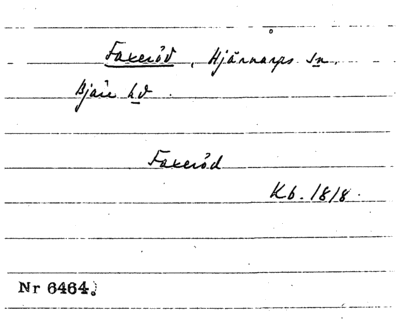 Faxeröd, Hjärnarps sn.
Bjäre hd.
Faxeröd
Kb. 1818.
Nr 6464.